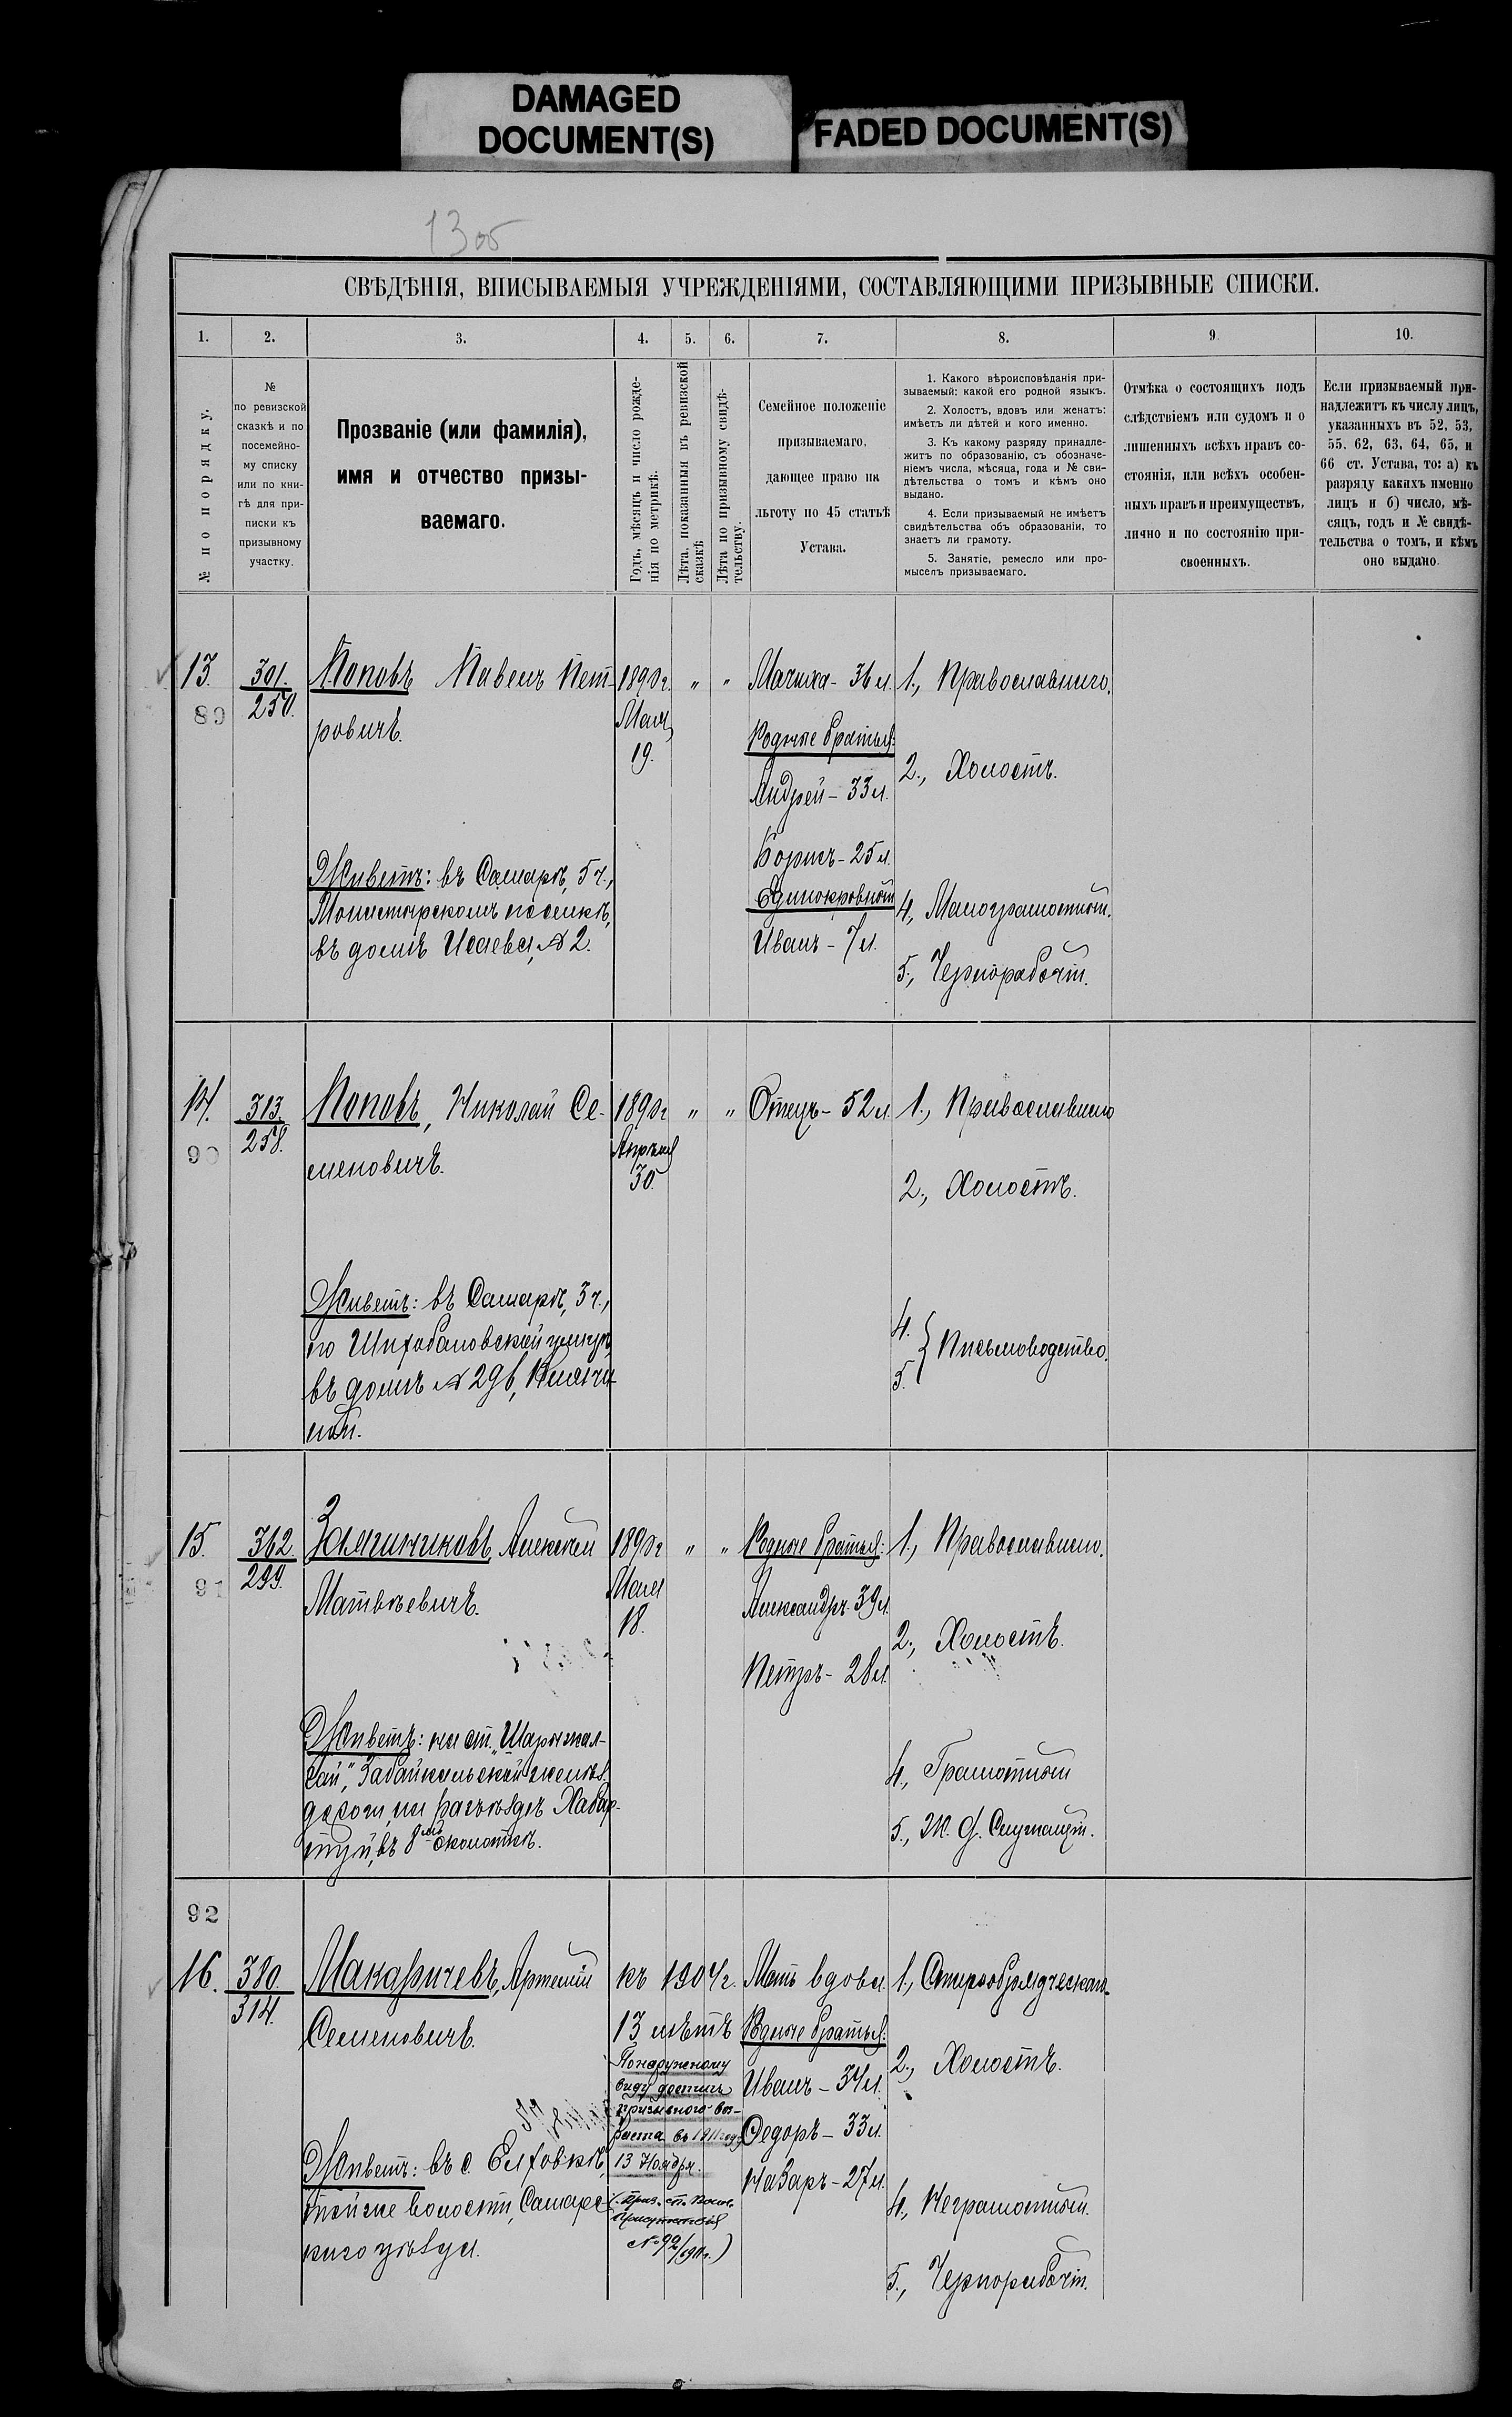 DAMAGED
DOCUMENT(S)
FADED DOCUMENT(S)
13 об
СВѢДѢНІЯ, ВПИСЫВАЕМЫЯ УЧРЕЖДЕНІЯМИ, СОСТАВЛЯЮЩИМИ ПРИЗЫВНЫЕ СПИСКИ.
1. 2. 3. 4. 5. 6. 7. 8. 9. 10.
№ по порядку.
№
по ревизской
сказкѣ и по
посемейно-
му списку
или по кни-
гѣ для при-
писки къ
призывному
участку.
Прозваніе (или фамилія),
имя и отчество призы-
ваемаго.
Годъ, мѣсяцъ и число рожде-
нія по метрикѣ.
Лѣта, показанныя въ ревизской
сказкѣ
Лѣта по призывному свидѣ-
тельству.
Семейное положеніе
призываемаго,
дающее право на
льготу по 45 статьѣ
Устава.
1. Какого вѣроисповѣданія при-
зываемый: какой его родной языкъ.
2. Холостъ, вдовъ или женатъ:
имѣетъ ли дѣтей и кого именно.
3. Къ какому разряду принадле-
житъ по образованію, съ обозначе-
ніемъ числа, мѣсяца, года и № сви-
дѣтельства о томъ и кѣмъ оно
выдано.
4. Если призываемый не имѣетъ
свидѣтельства объ образованіи, то
знаетъ ли грамоту.
5. Занятіе, ремесло или про-
мыселъ призываемаго.
Отмѣка о состоящихъ подъ
слѣдствіемъ или судомъ и о
лишенныхъ всѣхъ правъ со-
стоянія, или всѣхъ особен-
ныхъ правъ и преимуществъ,
лично и по состоянію при-
своенныхъ.
Если призываемый при-
надлежитъ къ числу лицъ,
указанныхъ въ 52, 53,
55, 62, 63, 64, 65, и
66 ст. Устава, то: а) къ
разряду какихъ именно
лицъ и б) число, мѣ-
сяцъ, годъ и № свидѣ-
тельства о томъ, и кѣмъ
оно выдано.
13.
89
301.
250.
Поповъ Павелъ Пет-
ровичъ.
Живетъ: въ Самарѣ, 5 ч.,
Монастырскомъ поселкѣ,
въ домѣ Исаева, № 2.
1890 г.
Мая
19.
" "
Мачиха - 36 л.
Родные братья:
Андрей - 33 л.
Борисъ - 25 л.
Единокровный
Иванъ - 7 л.
1., Православнаго.
2., Холостъ.
4., Малограмотный.
5., Чернорабочій.
14.
90
313.
258.
Поповъ, Николай Се-
меновичъ.
Живетъ: въ Самарѣ, 3 ч.,
по Шихобаловской улицѣ,
въ домѣ № 296,
1890 г
Апрѣля
30.
" "
Отецъ - 52 л.
1., Православнаго
2., Холостъ.
4.
5. } Письмоводство.
15.
91
362.
299.
Алексѣй
Матвѣевичъ.
Живетъ: на ст. „Шарыжал-
гай", Забайкальской желѣз.
дороги, на разъѣздѣ Хабар-
туй, въ 8мъ околоткѣ.
1890 г
Мая
18.
" "
Родные братья:
Александръ 39 л.
Петръ - 28 л.
1., Православнаго.
2., Холостъ.
4., Грамотный
5., Ж. д. Служащій.
92
16.
380.
314.
Макарычевъ, Артемій
Семеновичъ.
Живетъ: въ с. Елховкѣ,
той же волости, Самарс-
каго уѣзда.
къ 1904 г.
13 лѣтъ
По наружному
виду достигъ
призывного воз-
раста въ 1911 году
13 Ноября.
№ 92/1911 г.)
Мать вдова.
Родные братья:
Иванъ - 34 л.
Федоръ - 33 л.
Назаръ - 27 л.
1., Старообрядческаго.
2., Холостъ.
4., Неграмотный.
5., Чернорабочій.